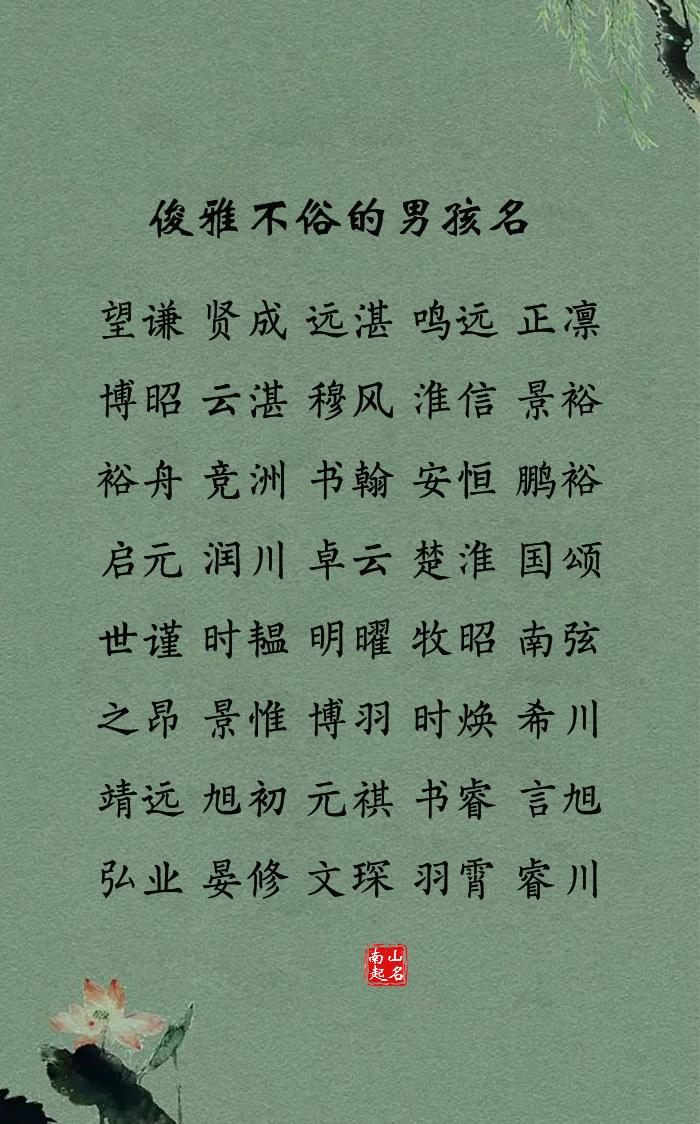 俊雅不俗的男孩名
望谦 贤成 远湛 鸣远 正凛
博昭 云湛 穆风 淮信 景裕
裕舟 竞洲 书翰 安恒 鹏裕
启元 润川 卓云 楚淮 国颂
世谨 时韫 明曜 牧昭 南弦
之昂 景惟 博羽 时焕 希川
靖远 旭初 元祺 书睿 言旭
弘业 晏修 文琛 羽霄 睿川
南山
起名